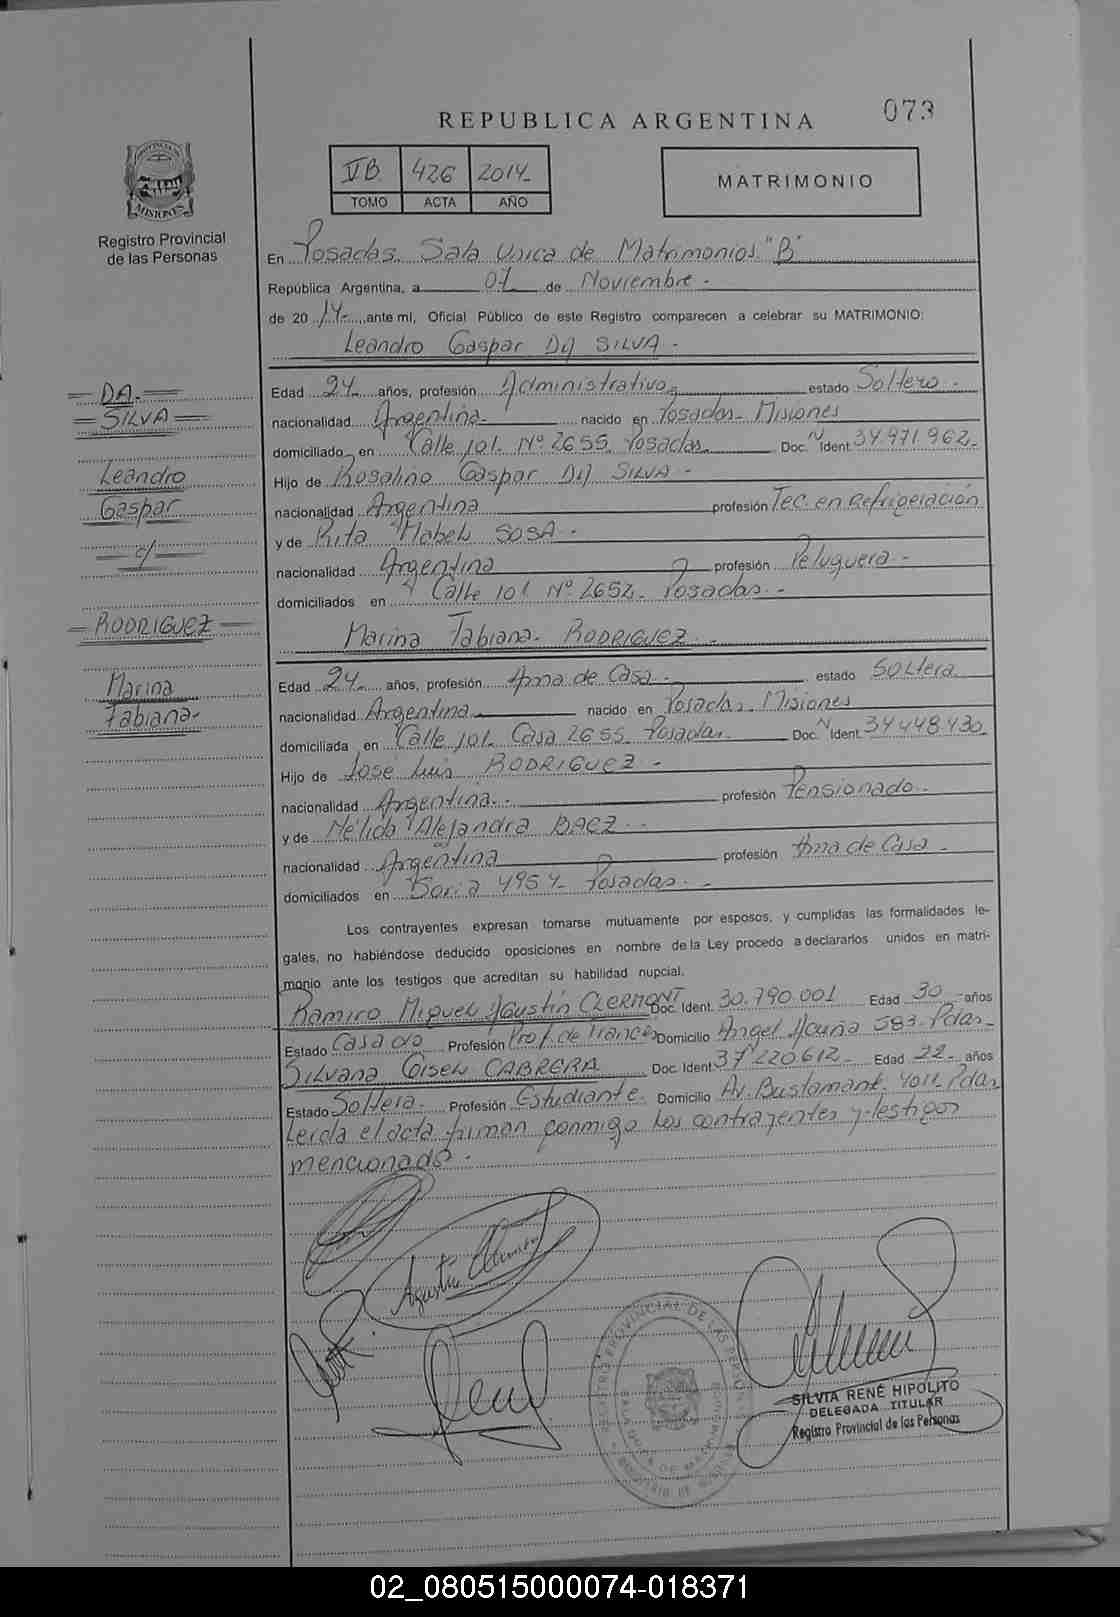 073
REPUBLICA ARGENTINA
VB 426 2014
TOMO ACTA AÑO
MATRIMONIO
PROVINCIA DE
MISIONES
Registro Provincial
de las Personas
En Posadas. Sala Unica de Matrimonios "B"
República Argentina, a 07 de Noviembre.
de 20 14 ,ante mí, Oficial Público de este Registro comparecen a celebrar su MATRIMONIO:
Leandro Gaspar DA SILVA.
DA
SILVA
Leandro
Gaspar
c/
RODRIGUEZ
Marina
Fabiana
Edad 24 años, profesión Administrativo estado Soltero.
nacionalidad Argentina nacido en Posadas - Misiones
domiciliado en Calle 101. Nº 2655. Posadas. Doc. N Ident 34.971.962
Hijo de Rosalino Gaspar DA SILVA.
nacionalidad Argentina profesión Tec. en Refrigeración
y de Rita Mabel SOSA.
nacionalidad Argentina profesión Peluquera.
domiciliados en Calle 101 Nº 2652. Posadas.
Marina Fabiana RODRIGUEZ.
Edad 24 años, profesión Ama de Casa. estado Soltera.
nacionalidad Argentina nacido en Posadas. Misiones
domiciliada en Calle 101. Casa 2655. Posadas. Doc. N Ident 34448430
Hijo de José Luis RODRIGUEZ.
nacionalidad Argentina. profesión Pensionado.
y de Nélida Alejandra BAEZ.
nacionalidad Argentina profesión Ama de Casa.
domiciliados en Soria 4954 Posadas.
Los contrayentes expresan tomarse mutuamente por esposos, y cumplidas las formalidades le-
gales, no habiéndose deducido oposiciones en nombre de la Ley procedo a declararlos unidos en matri-
monio ante los testigos que acreditan su habilidad nupcial.
Ramiro Miguel Agustín CLERMONT Doc. Ident. 30.790.001 Edad 30 años
Estado Casado Profesión Prof. de Frances Domicilio Angel Acuña 583 Pdas
Silvana Gisel CABRERA Doc. Ident 37220612 Edad 22 años
Estado Soltera. Profesión Estudiante. Domicilio Av. Bustamante. 4011. Pdas
Leida el acta firman conmigo los contrayentes y testigos
mencionado.
Agustín Clermont
SILVIA RENÉ HIPOLITO
DELEGADA TITULAR
Registro Provincial de las Personas
02_080515000074-018371